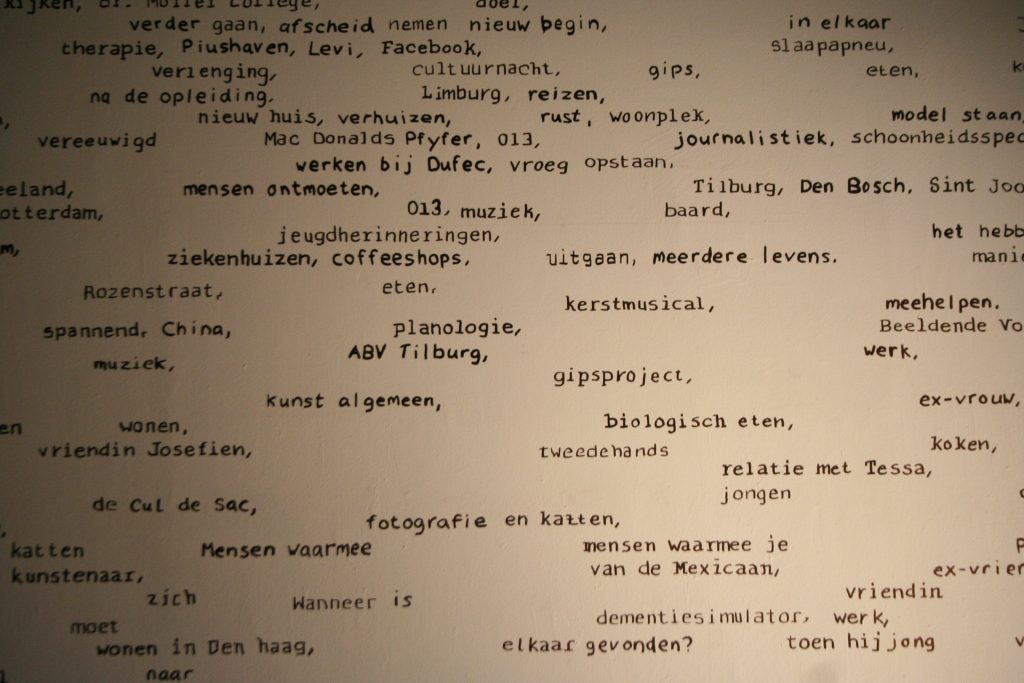 kijken, dr. Moller College, doel,
verder gaan, afscheid nemen nieuw begin, in elkaar
therapie, Piushaven, Levi, Facebook, slaapapneu,
verlenging, cultuurnacht, gips, eten,
na de opleiding, Limburg, reizen,
nieuw huis, verhuizen, rust, woonplek, model staan,
vereeuwigd Mac Donalds Pfyfer, 013, journalistiek, schoonheidsspec
werken bij Dufec, vroeg opstaan,
eeland, mensen ontmoeten, Tilburg, Den Bosch, Sint Joo
otterdam, 013, muziek, baard,
jeugdherinneringen, het hebb
m, ziekenhuizen, coffeeshops, uitgaan, meerdere levens. manie
Rozenstraat, eten,
kerstmusical, meehelpen.
spannend, China, planologie, Beeldende Vo
muziek, ABV Tilburg, werk,
gipsproject,
kunst algemeen, ex-vrouw,
en wonen, biologisch eten,
vriendin Josefien, tweedehands koken,
relatie met Tessa,
de Cul de Sac, jongen
fotografie en katten,
katten Mensen waarmee mensen waarmee je
kunstenaar, van de Mexicaan, ex-vrien
zich Wanneer is vriendin
moet dementiesimulator, werk,
wonen in Den haag, elkaar gevonden? toen hij jong
naar